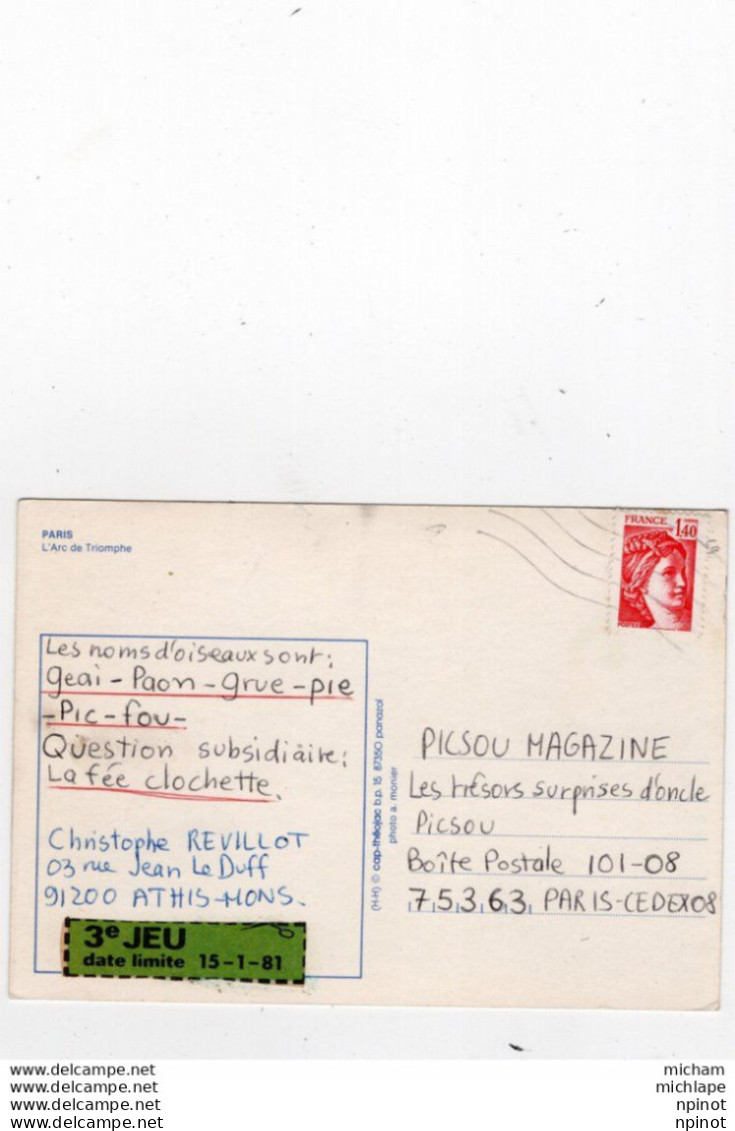 PARIS
L'Arc de Triomphe
FRANCE
1,40
POSTES
Les noms d'oiseaux sont:
geai - Paon - grue - pie
- Pic - fou -
Question subsidiaire:
La fée clochette.
Christophe REVILLOT
03 rue Jean Le Duff
91200 ATHIS-MONS.
3e JEU
date limite 15-1-81
(H-H) © cap-théojac b.p. 15 87350 panazol
photo a. monier
PICSOU MAGAZINE
Les trésors surprises d'oncle
Picsou
Boîte Postale 101-08
75363 PARIS-CEDEX08
www.delcampe.net micham
www.delcampe.net michlape
www.delcampe.net npinot
www.delcampe.net npinot